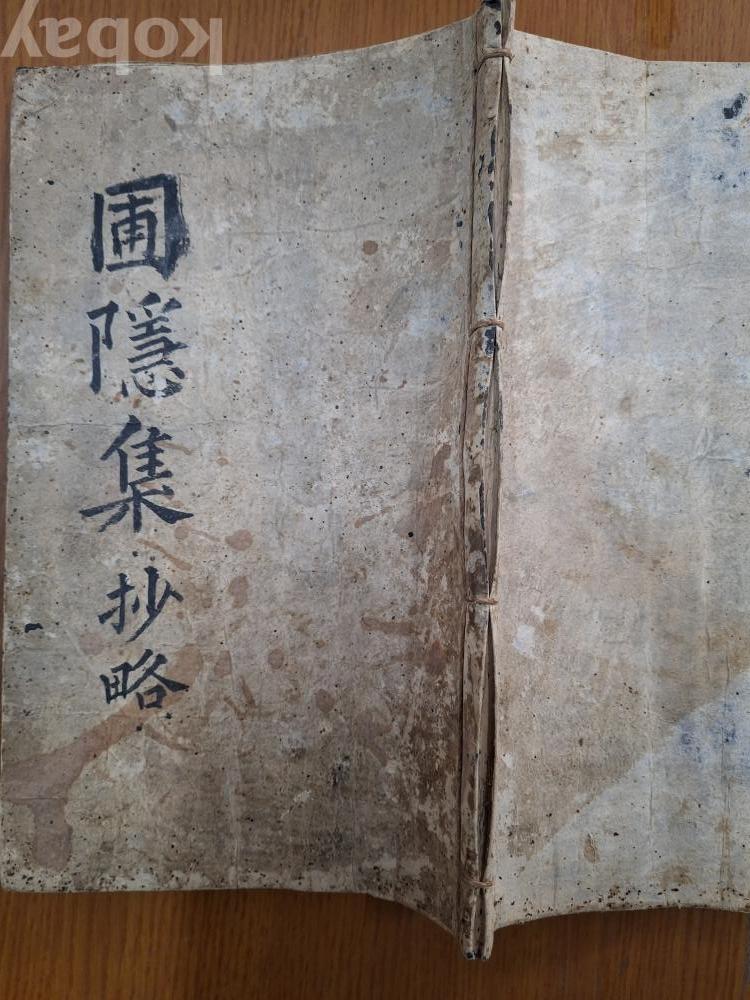 kobay
圃隱集抄略